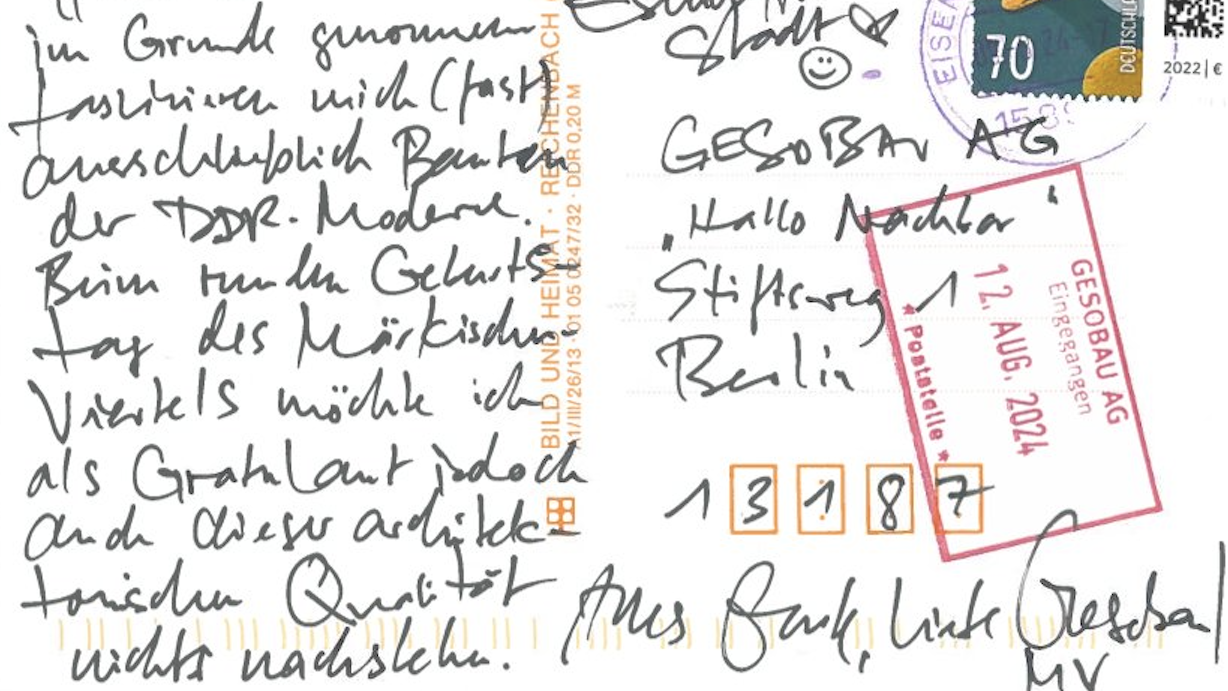 im Grunde genommen
faszinieren mich (fast)
ausschließlich Bauten
der DDR-Moderne.
Beim runden Geburts-
tag des Märkischen
Viertels möchte ich
als Gratulant jedoch
auch dieser architek-
tonischen Qualität
nichts nachstehen.
BILD UND HEIMAT · REICHENBACH
A1/III/26/13 · 01 05 0247/32 · DDR 0,20 M
Stadt
70
DEUTSCHLA
2022 | €
EISE
GESOBAU AG
„Hallo Nachbar"
Stiftsweg 1
Berlin
13187
GESOBAU AG
Eingegangen
12. AUG. 2024
* Poststelle *
liebe Gesobau
MV